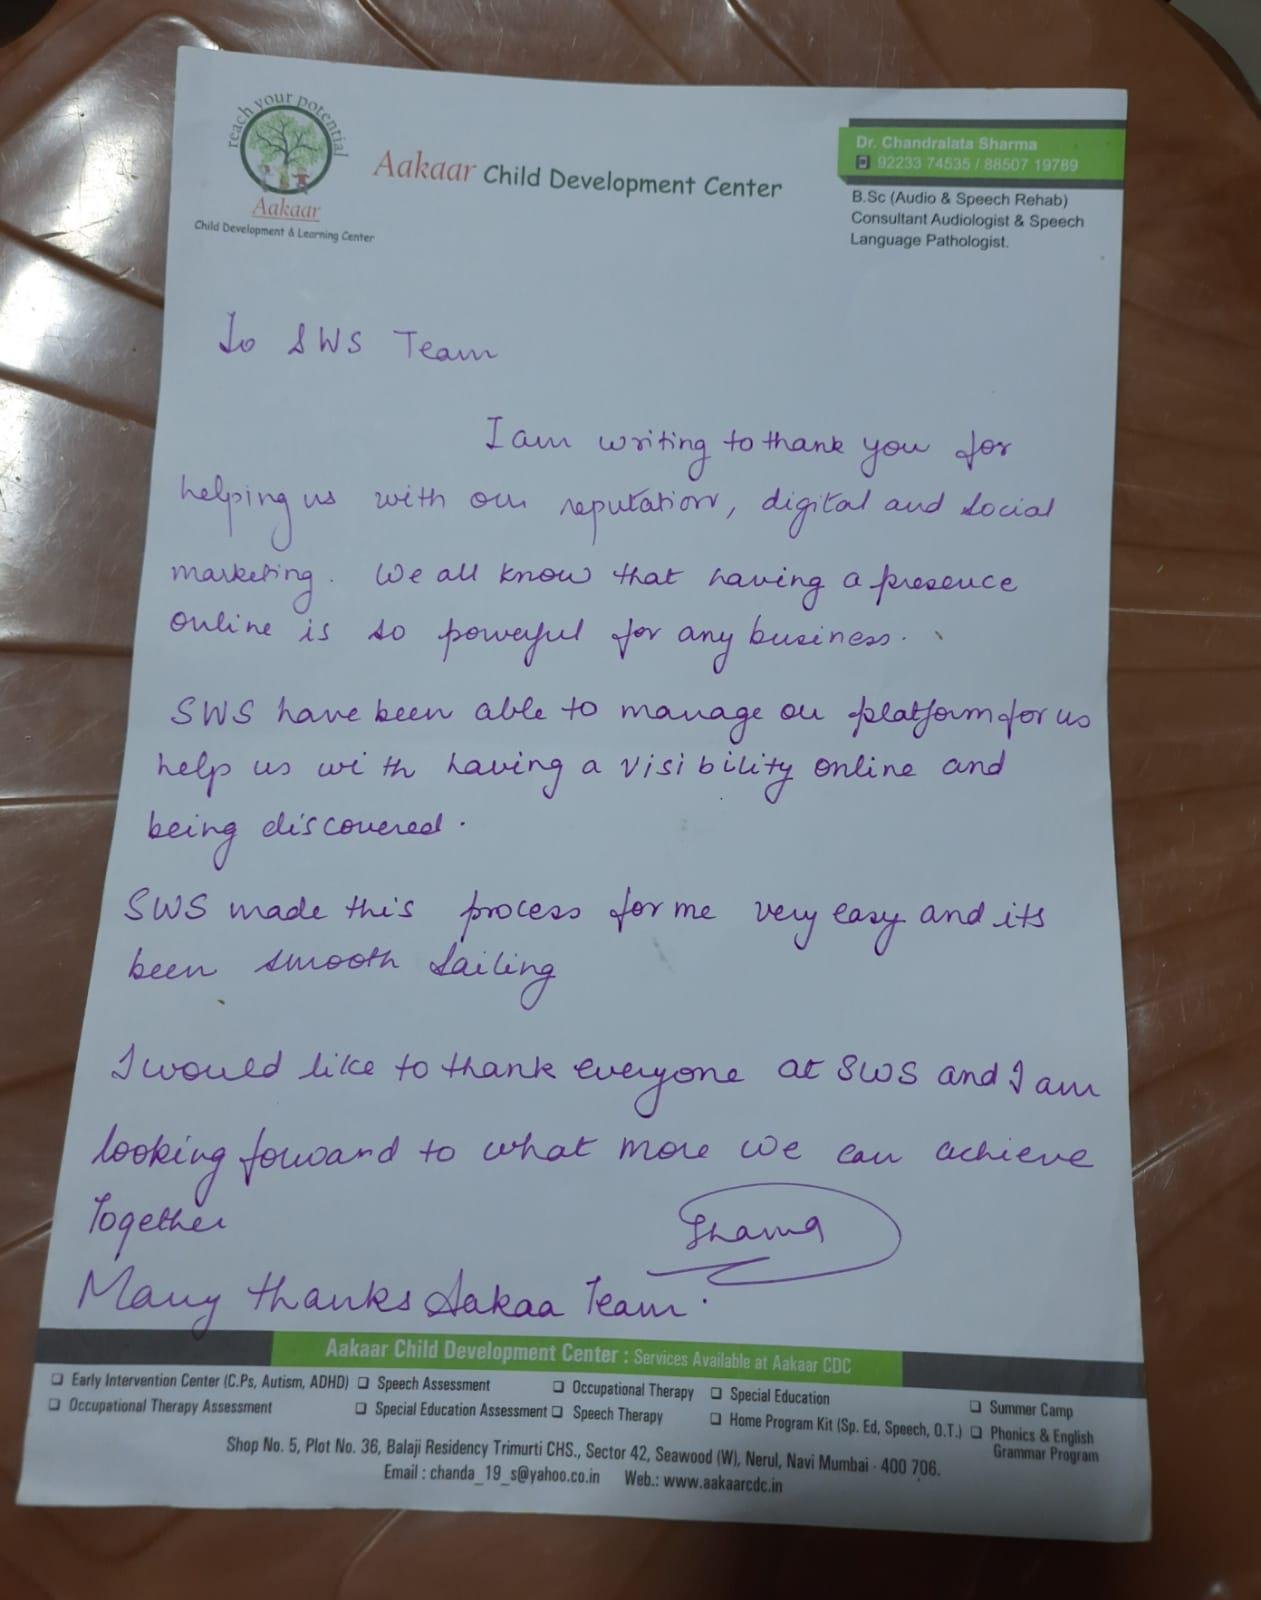 reach your potential
Aakaar
Child Development & Learning Center
Aakaar Child Development Center
Dr. Chandralata Sharma
92233 74535 / 88507 19789
B.Sc (Audio & Speech Rehab)
Consultant Audiologist & Speech
Language Pathologist.
To SWS Team
I am writing to thank you for
helping us with our reputation, digital and social
marketing. We all know that having a presence
online is so powerful for any business.
SWS have been able to manage ou platform for us
help us with having a visibility online and
being discovered.
SWS made this process for me very easy and its
been smooth sailing
I would like to thank everyone at SWS and I am
looking forward to what more we can achieve
Together
Sharma
Many thanks Aakaa Team.
Aakaar Child Development Center : Services Available at Aakaar CDC
❑ Early Intervention Center (C.Ps, Autism, ADHD) ❑ Speech Assessment ❑ Occupational Therapy ❑ Special Education ❑ Summer Camp
❑ Occupational Therapy Assessment ❑ Special Education Assessment ❑ Speech Therapy ❑ Home Program Kit (Sp. Ed, Speech, O.T.) ❑ Phonics & English
Grammar Program
Shop No. 5, Plot No. 36, Balaji Residency Trimurti CHS., Sector 42, Seawood (W), Nerul, Navi Mumbai - 400 706.
Email : chanda_19_s@yahoo.co.in Web.: www.aakaarcdc.in